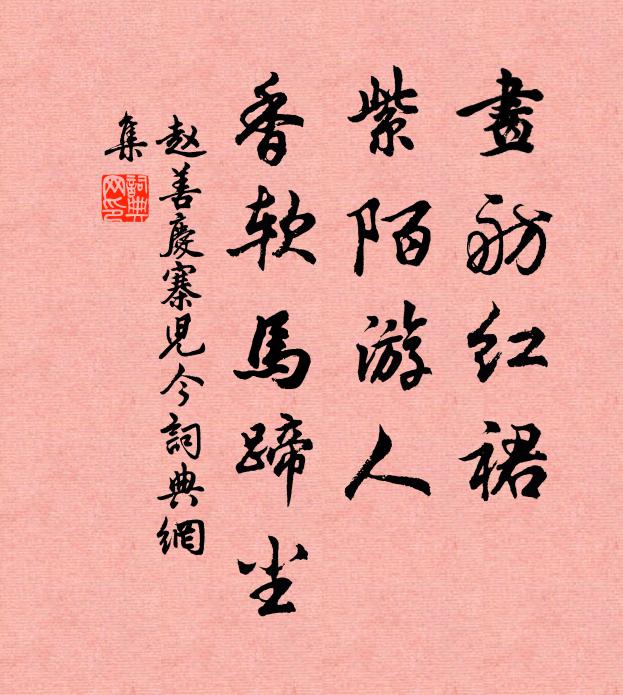 畫舫紅裙
紫陌游人
香软馬蹄尘
赵善慶寨児令詞典網
集
詞典
网印